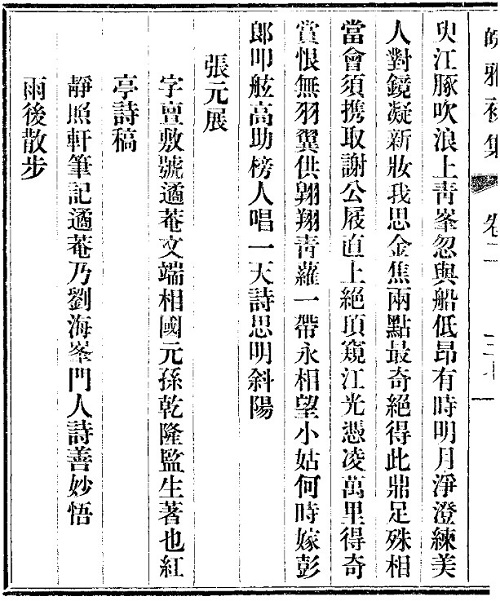 皖雅初集 卷二 三十一
臾江豚吹浪上青峯忽與船低昂有時明月淨澄練美
人對鏡凝新妝我思金焦兩點最奇絕得此鼎足殊相
當會須携取謝公屐直上絕頂窺江光憑凌萬里得奇
賞恨無羽翼供翺翔青蘿一帶永相望小姑何時嫁彭
郎叩舷高助榜人唱一天詩思明斜陽
張元展
字亶敷號遹菴文端相國元孫乾隆監生著也紅
亭詩稿
靜照軒筆記遹菴乃劉海峯門人詩善妙悟
雨後散步